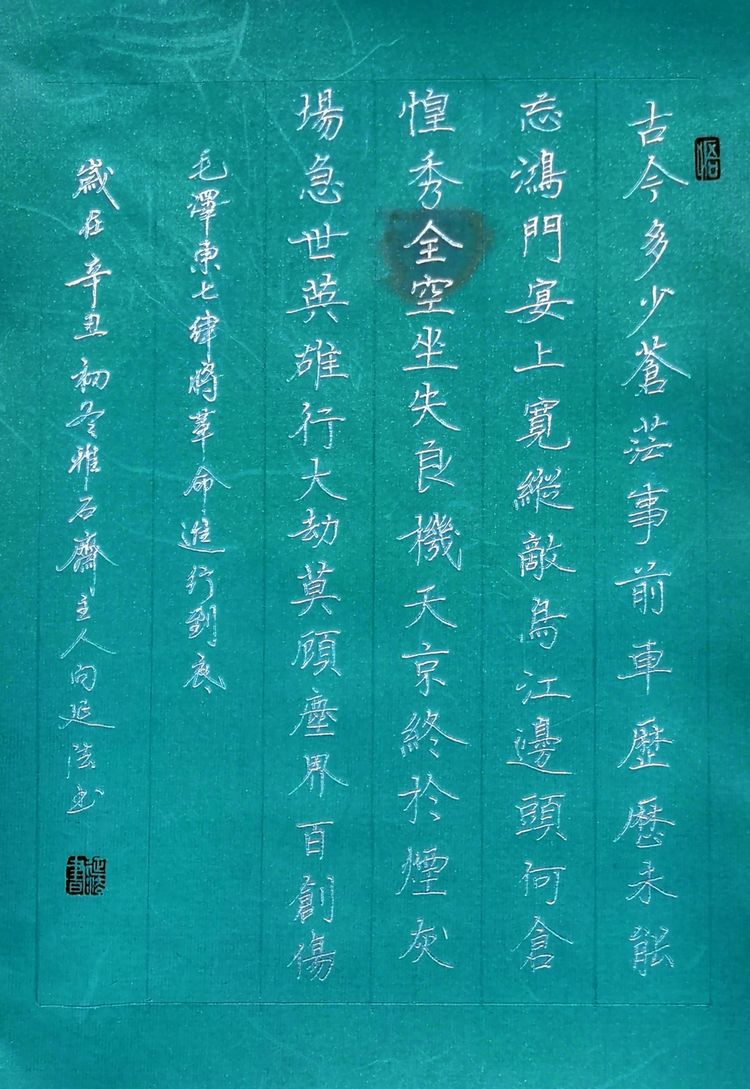 古今多少蒼茫事前車歷歷未能
忘鴻門宴上寬縱敵烏江邊頭何倉
惶秀全空坐失良機天京終於煙灰
場急世英雄行大劫莫顧塵界百創傷
毛澤東七律將革命進行到底
歲在辛丑初冬雅石齋主人向延浩书